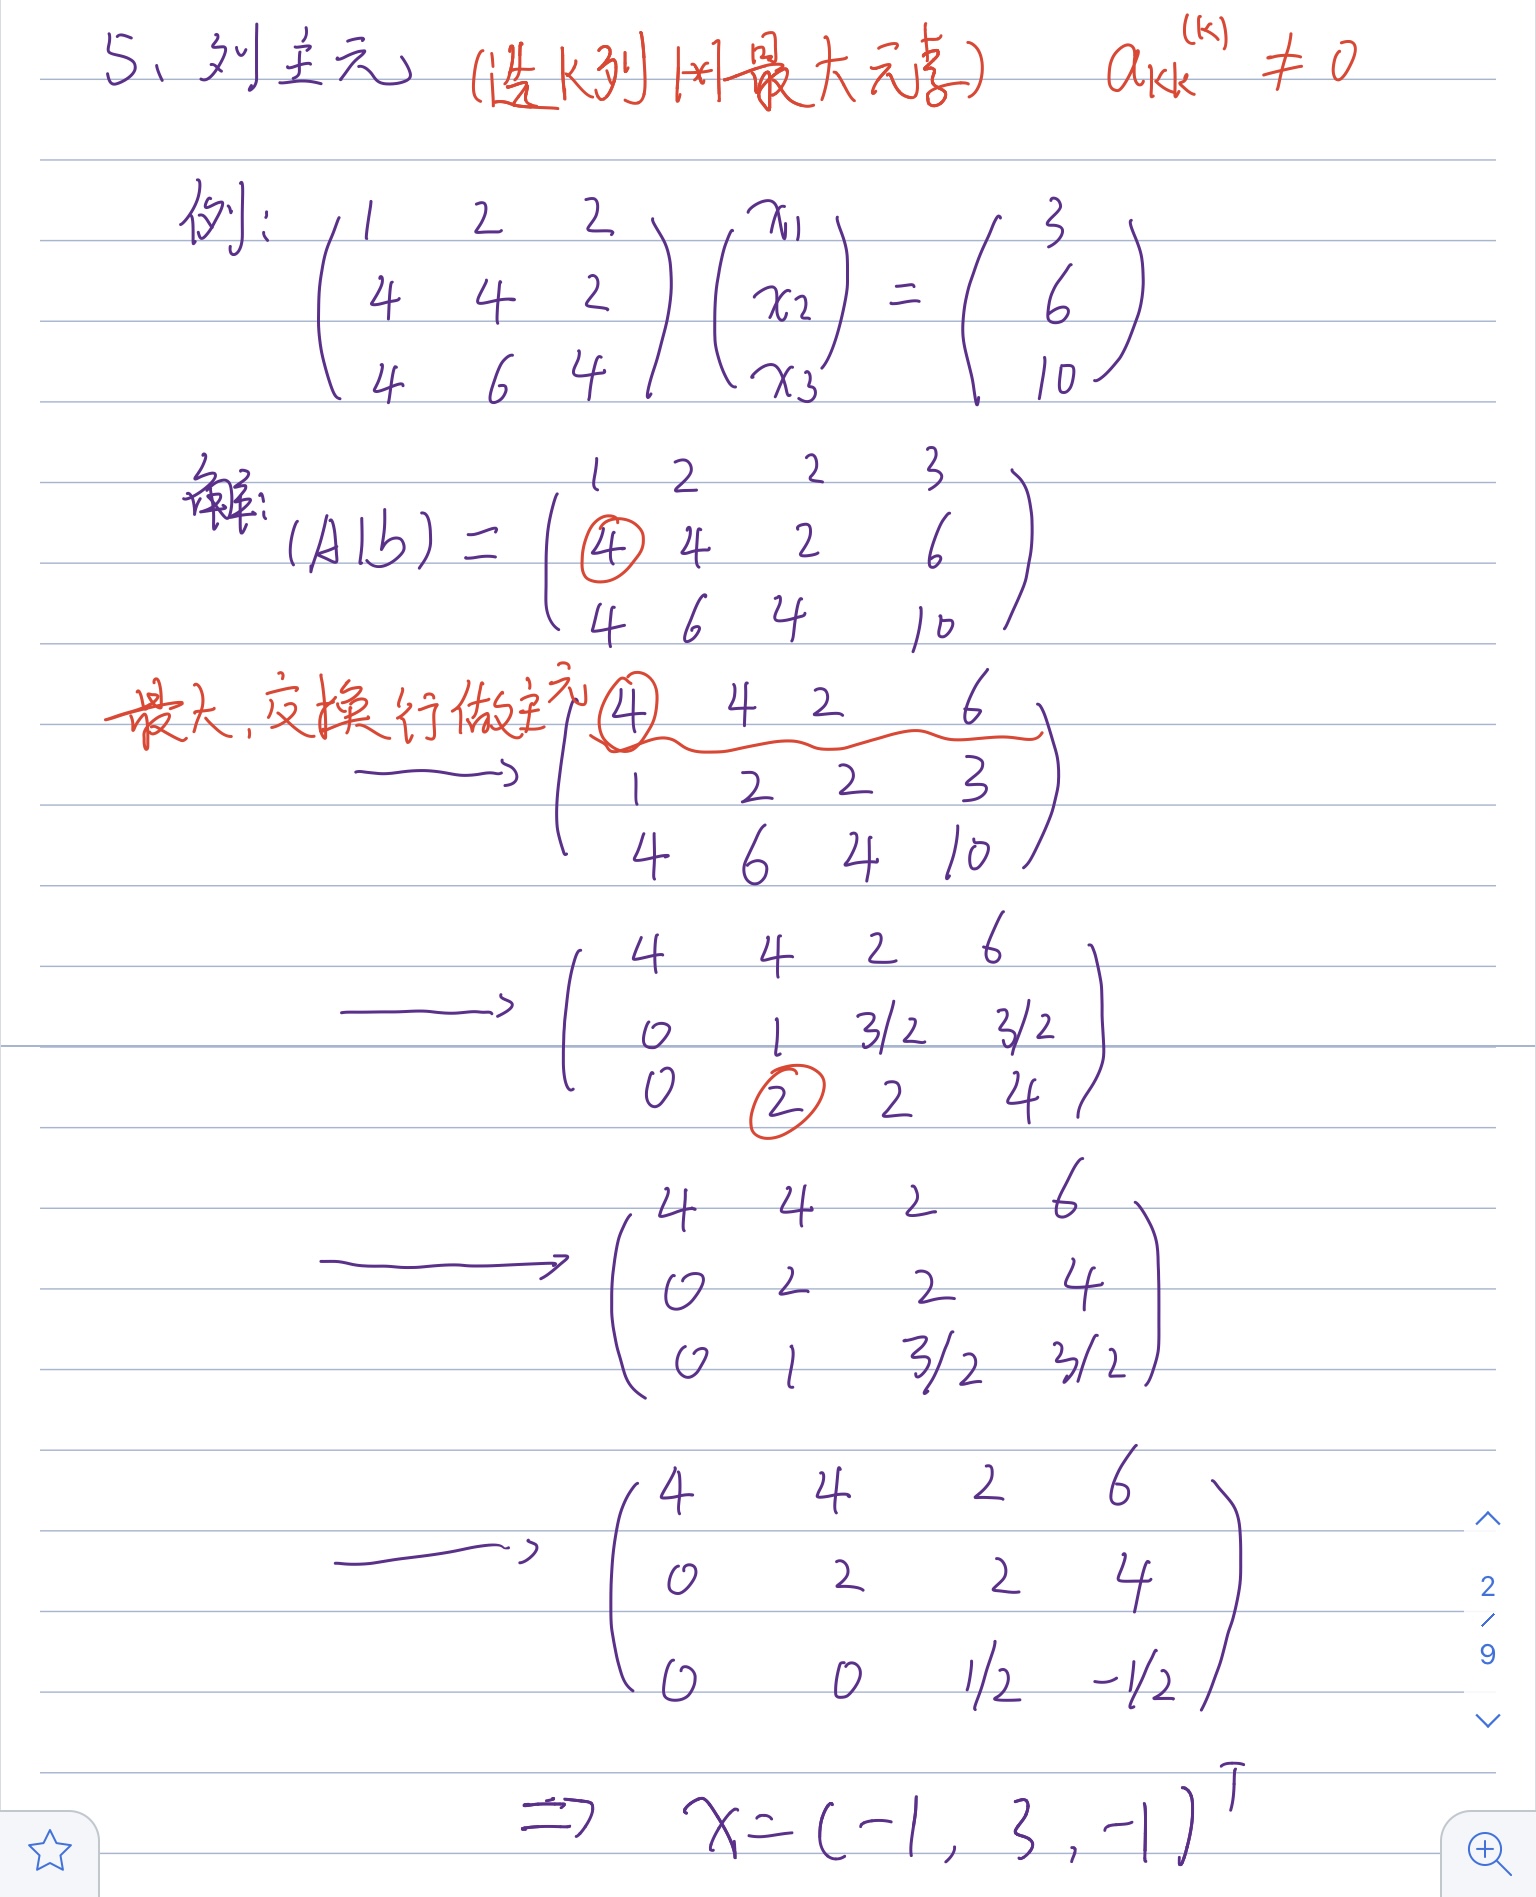 5、列主元 (选K列|*|最大元素) aₖₖ⁽ᵏ⁾ ≠ 0
例: ( 1 2 2 ) ( x₁ ) = ( 3 )
4 4 2 x₂ 6
4 6 4 x₃ 10
解: (A|b) = ( 1 2 2 3 )
4 4 2 6
4 6 4 10
最大,交换行做主元
→ ( 4 4 2 6 )
1 2 2 3
4 6 4 10
→ ( 4 4 2 6 )
0 1 3/2 3/2
0 2 2 4
→ ( 4 4 2 6 )
0 2 2 4
0 1 3/2 3/2
→ ( 4 4 2 6 )
0 2 2 4
0 0 1/2 -1/2
⇒ x = (-1, 3, -1)ᵀ
2
/
9